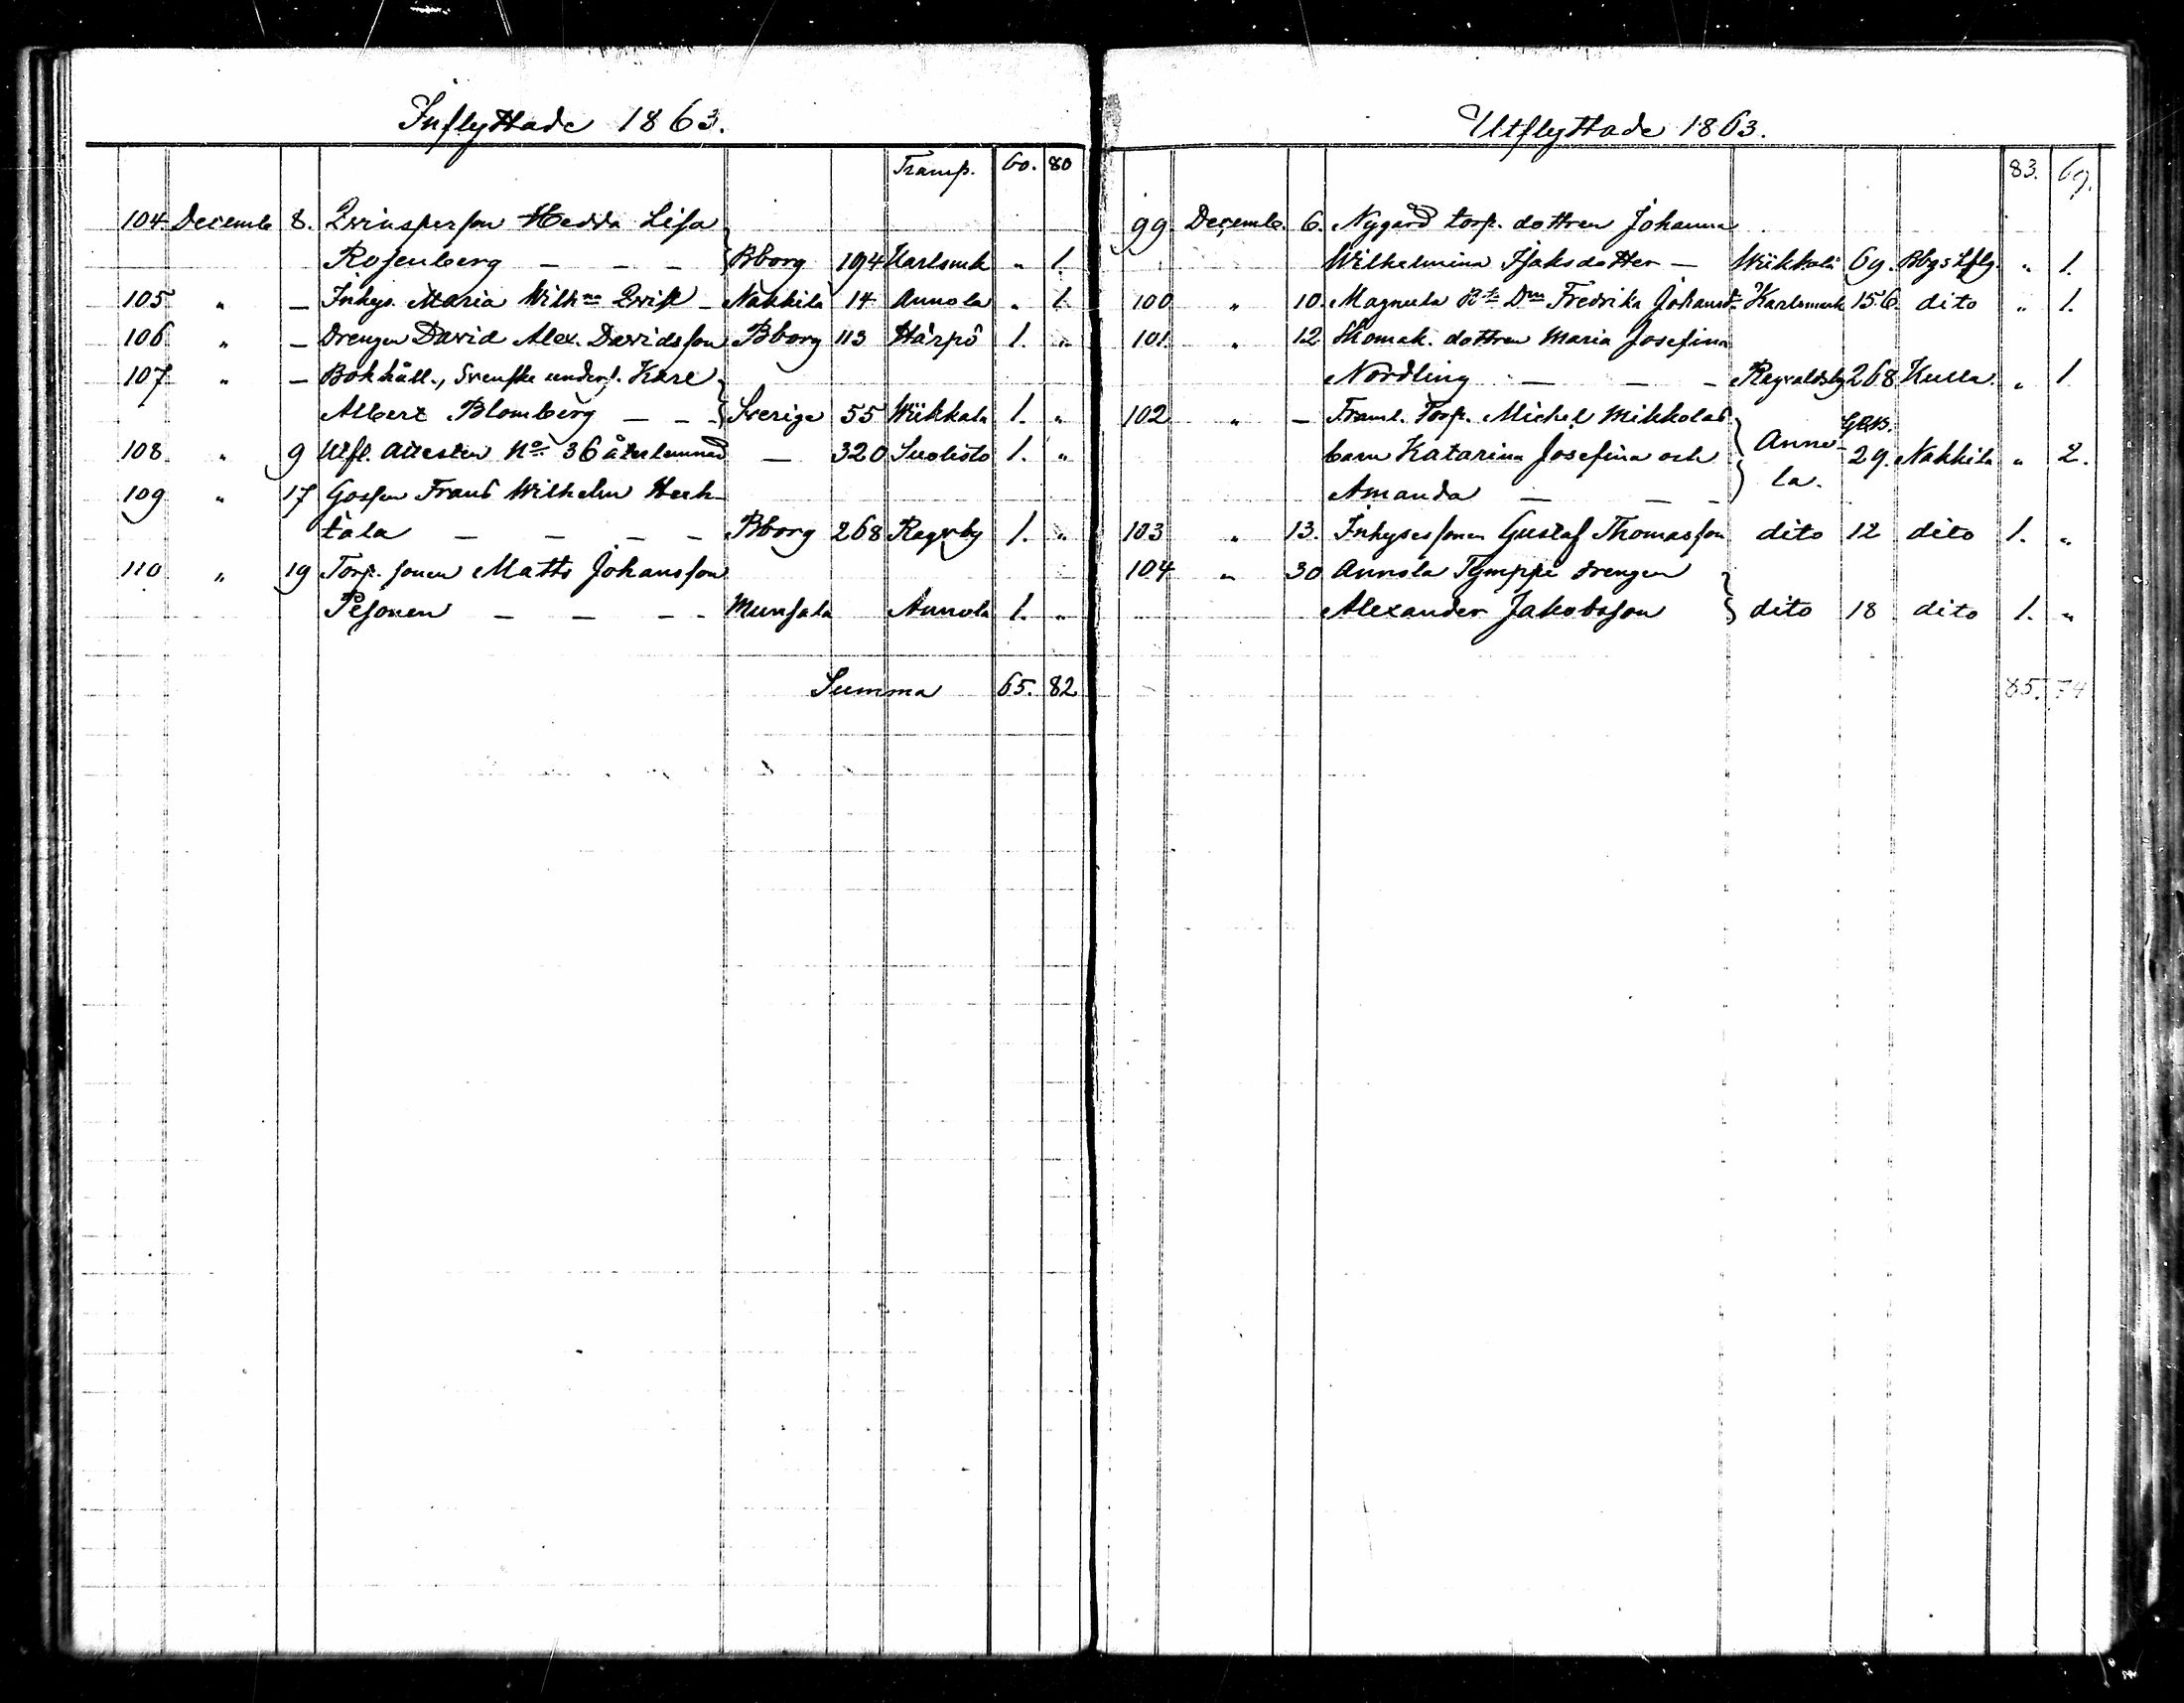 Inflyttade 1863.
Transp. 60. 80
104 Decembe 8. Qvinsperson Hedda Lisa
Rosenberg — — — Bborg 194 Karlsmk „ 1.
105 „ — Inhys. Maria Wilhna Qvist — Nakkila 14 Annola „ 1.
106 „ — Drengen David Alex. Davidsson Bborg 113 Härpö 1. „
107 „ — Bokhåll., Svenske unders. Karl
Albert Blomberg — — Sverige 55 Wiikkala 1. „
108. „ 9 Utfl. Attesten No 36 återlemnad — 320 Suolisto 1. „
109 „ 17 Gossen Frans Wilhelm Heik-
kila — — — — Bborg 268 Ragvby 1. „
110 „ 19 Torp. sonen Matts Johansson
Pesonen — — — — Munsala Annola 1. „
Summa 65. 82
Utflyttade 1863.
83. 69.
99 Decembe. 6. Nygård torp. dottren Johanna
Wilhelmina Isaksdotter — Wiikkala 69. Bbgs Lfg. „ 1.
100 „ 10. Magnusla Fredrika Johansdr Karlsmark 156. dito „ 1.
101. „ 12 Skomak. dottren Maria Josefina
Nordling — — — Ragvaldsby 268 Kulla. „ 1
102 „ — Framl. Torp. Michel Mikkolas
barn Katarina Josefina och Anno- 29. Nakkila „ 2.
Amanda — — — la.
103 „ 13. Inhysessonen Gustaf Thomasson dito 12 dito 1. „
104 „ 30 Annola Tymppi drengen
Alexander Jakobsson dito 18 dito 1. „
85. 74